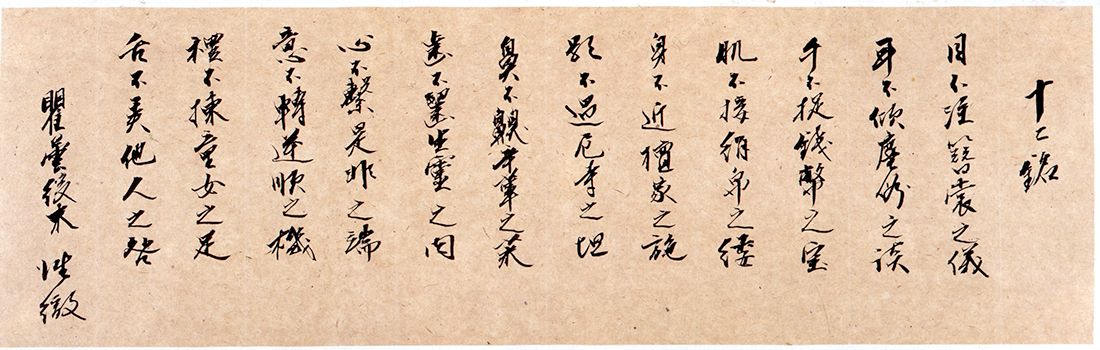 十二銘
目不注簪裳之儀
耳不傾塵俗之談
手不捉錢幣之宝
肌不接絹帛之縷
身不近檀家之施
影不過尼寺之垣
鼻不齅辛葷之菜
齒不齧生靈之肉
心不繫是非之端
意不轉逆順之機
禮不揀童女之足
舌不弄他人之咎
瞿曇後末 性徹